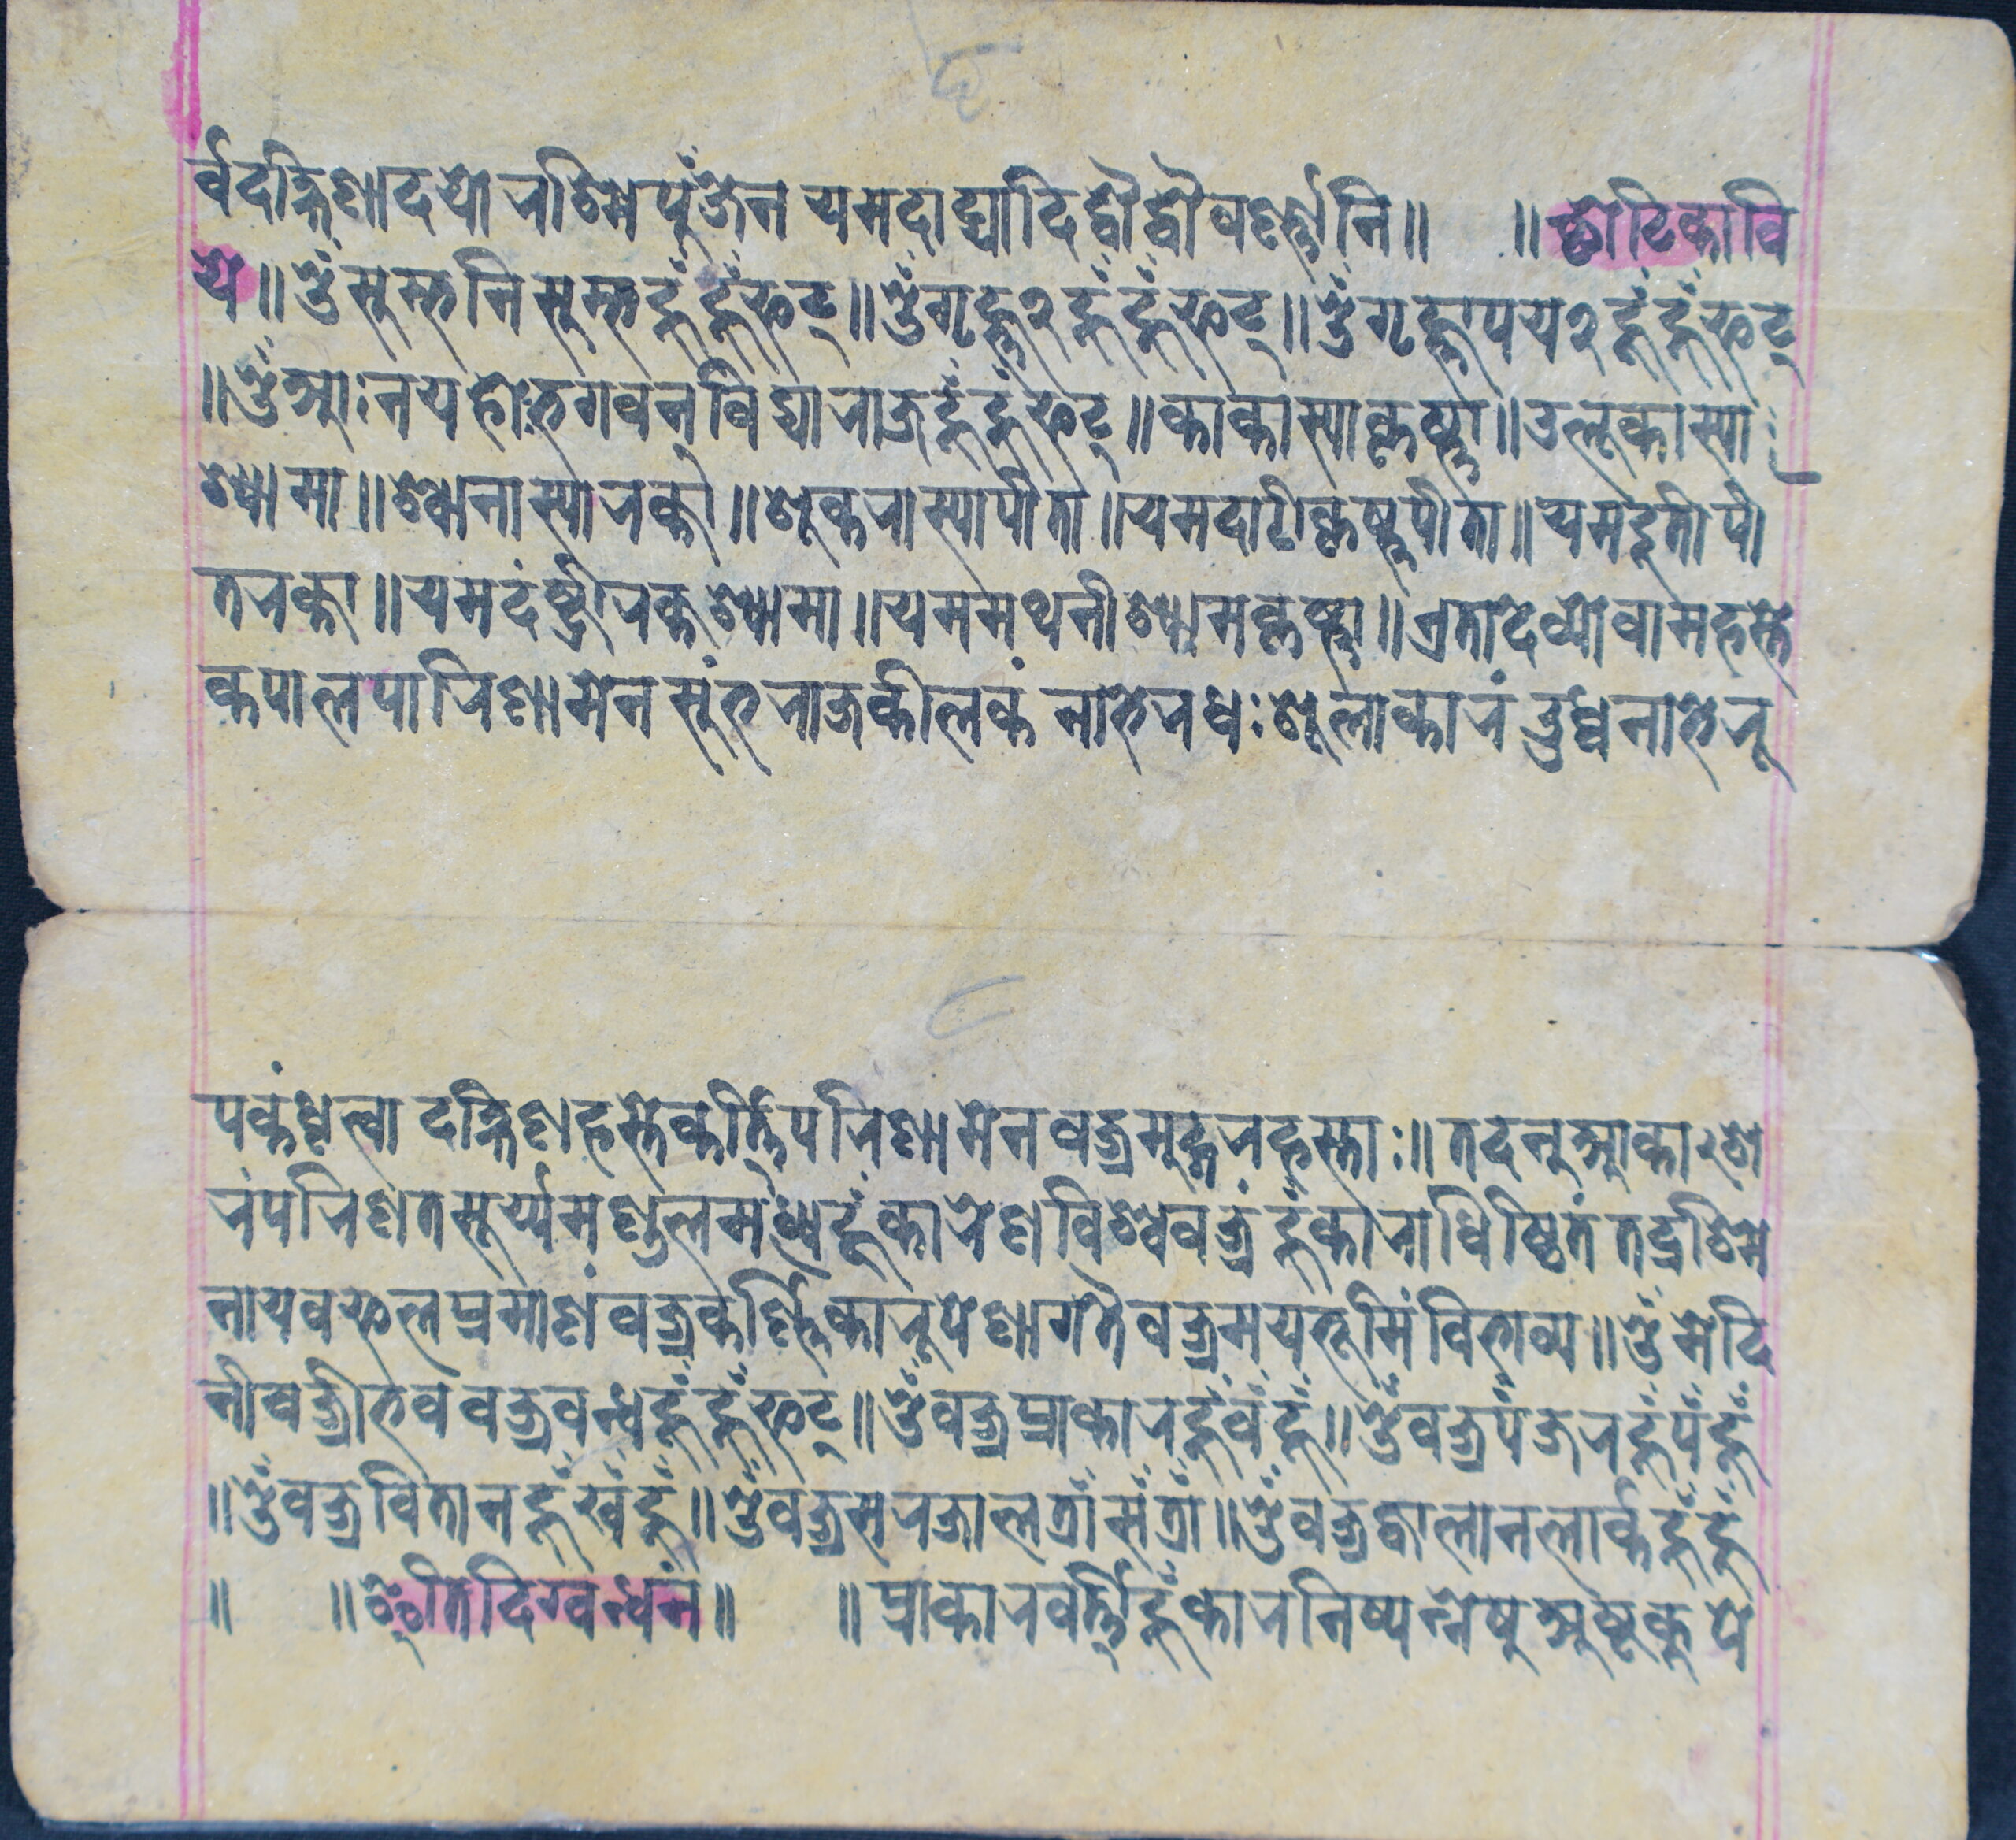 र्वदक्षिणादयो रश्मिपुंजेन यमदाढ्यादि द्वौद्वौवर्ण्णानि॥ ॥छोटिकावि
ये॥ ॐ सुम्भनिसुम्भहूँहूँफट्॥ ॐगृह्ण२हूँहूँफट्॥ ॐगृह्णापय२हूँहूँफट्
॥ॐआःनयहोःभगवन्विद्याराजहूँहूँफट्॥काकास्याकृष्णा॥उलूकास्या
श्यामा॥श्वानास्यारक्ता॥शूकरास्यापीता॥यमदाढीकृष्णपीता॥यमदूतीपी
तरक्ता॥यमदंष्ट्रीरक्तश्यामा॥यममथनीश्यामकृष्णा॥एतादेव्योवामहस्ते
कपालपारिणामेन सुंभराजकीलकं नाभेरधःशूलाकारं उर्ध्वनाभेरू
पकंधृत्वा दक्षिणहस्तेकर्त्तिपरिणामेन वज्रमुद्गरहस्ताः॥तदनुआकाश
रंपरिणतसूर्य्यमण्डलमध्यहूँकारेणविश्ववज्रंहूँकाराधिष्ठितं तद्रश्मि
नायवफलप्रमाणंवज्रकर्ण्णिकारूपेणागतैवज्रमयभूमिंविभाव्य॥ॐमेदि
नीवज्रीभववज्रवन्धहूँहूँफट्॥ॐवज्रप्राकारहूँवंहूँ॥ॐवज्रपंजरहूँपंहूँ
॥ॐवज्रवितानहूँखंहूँ॥ॐवज्रसरजालत्रांसंत्रां॥ॐवज्रज्वालानलार्कहूँहूँ
॥ ॥इतिदिग्वन्धनं॥ ॥प्राकारवर्त्तिहूँकारनिष्पन्नेषुअष्टकुपे